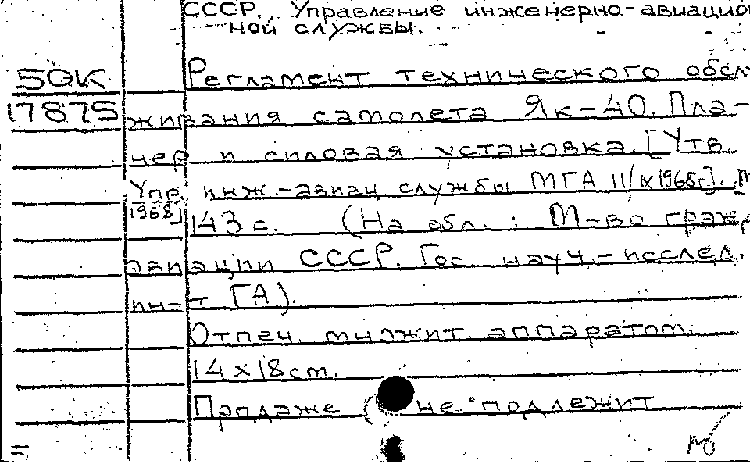 СССР. Управление инженерно-авиацион
ной службы.
50К Регламент технического обсл
17875 живания самолета Як-40. Пла-
нер и силовая установка. [Утв.
Упр. инж.-авиац службы МГА 11/IX1968г]. М
1968] 143 с. (На обл.: М-во граж
авиации СССР. Гос науч.-исслед.
ин-т ГА).
Отпеч. множит аппаратом.
14x18см.
Продаже не подлежит